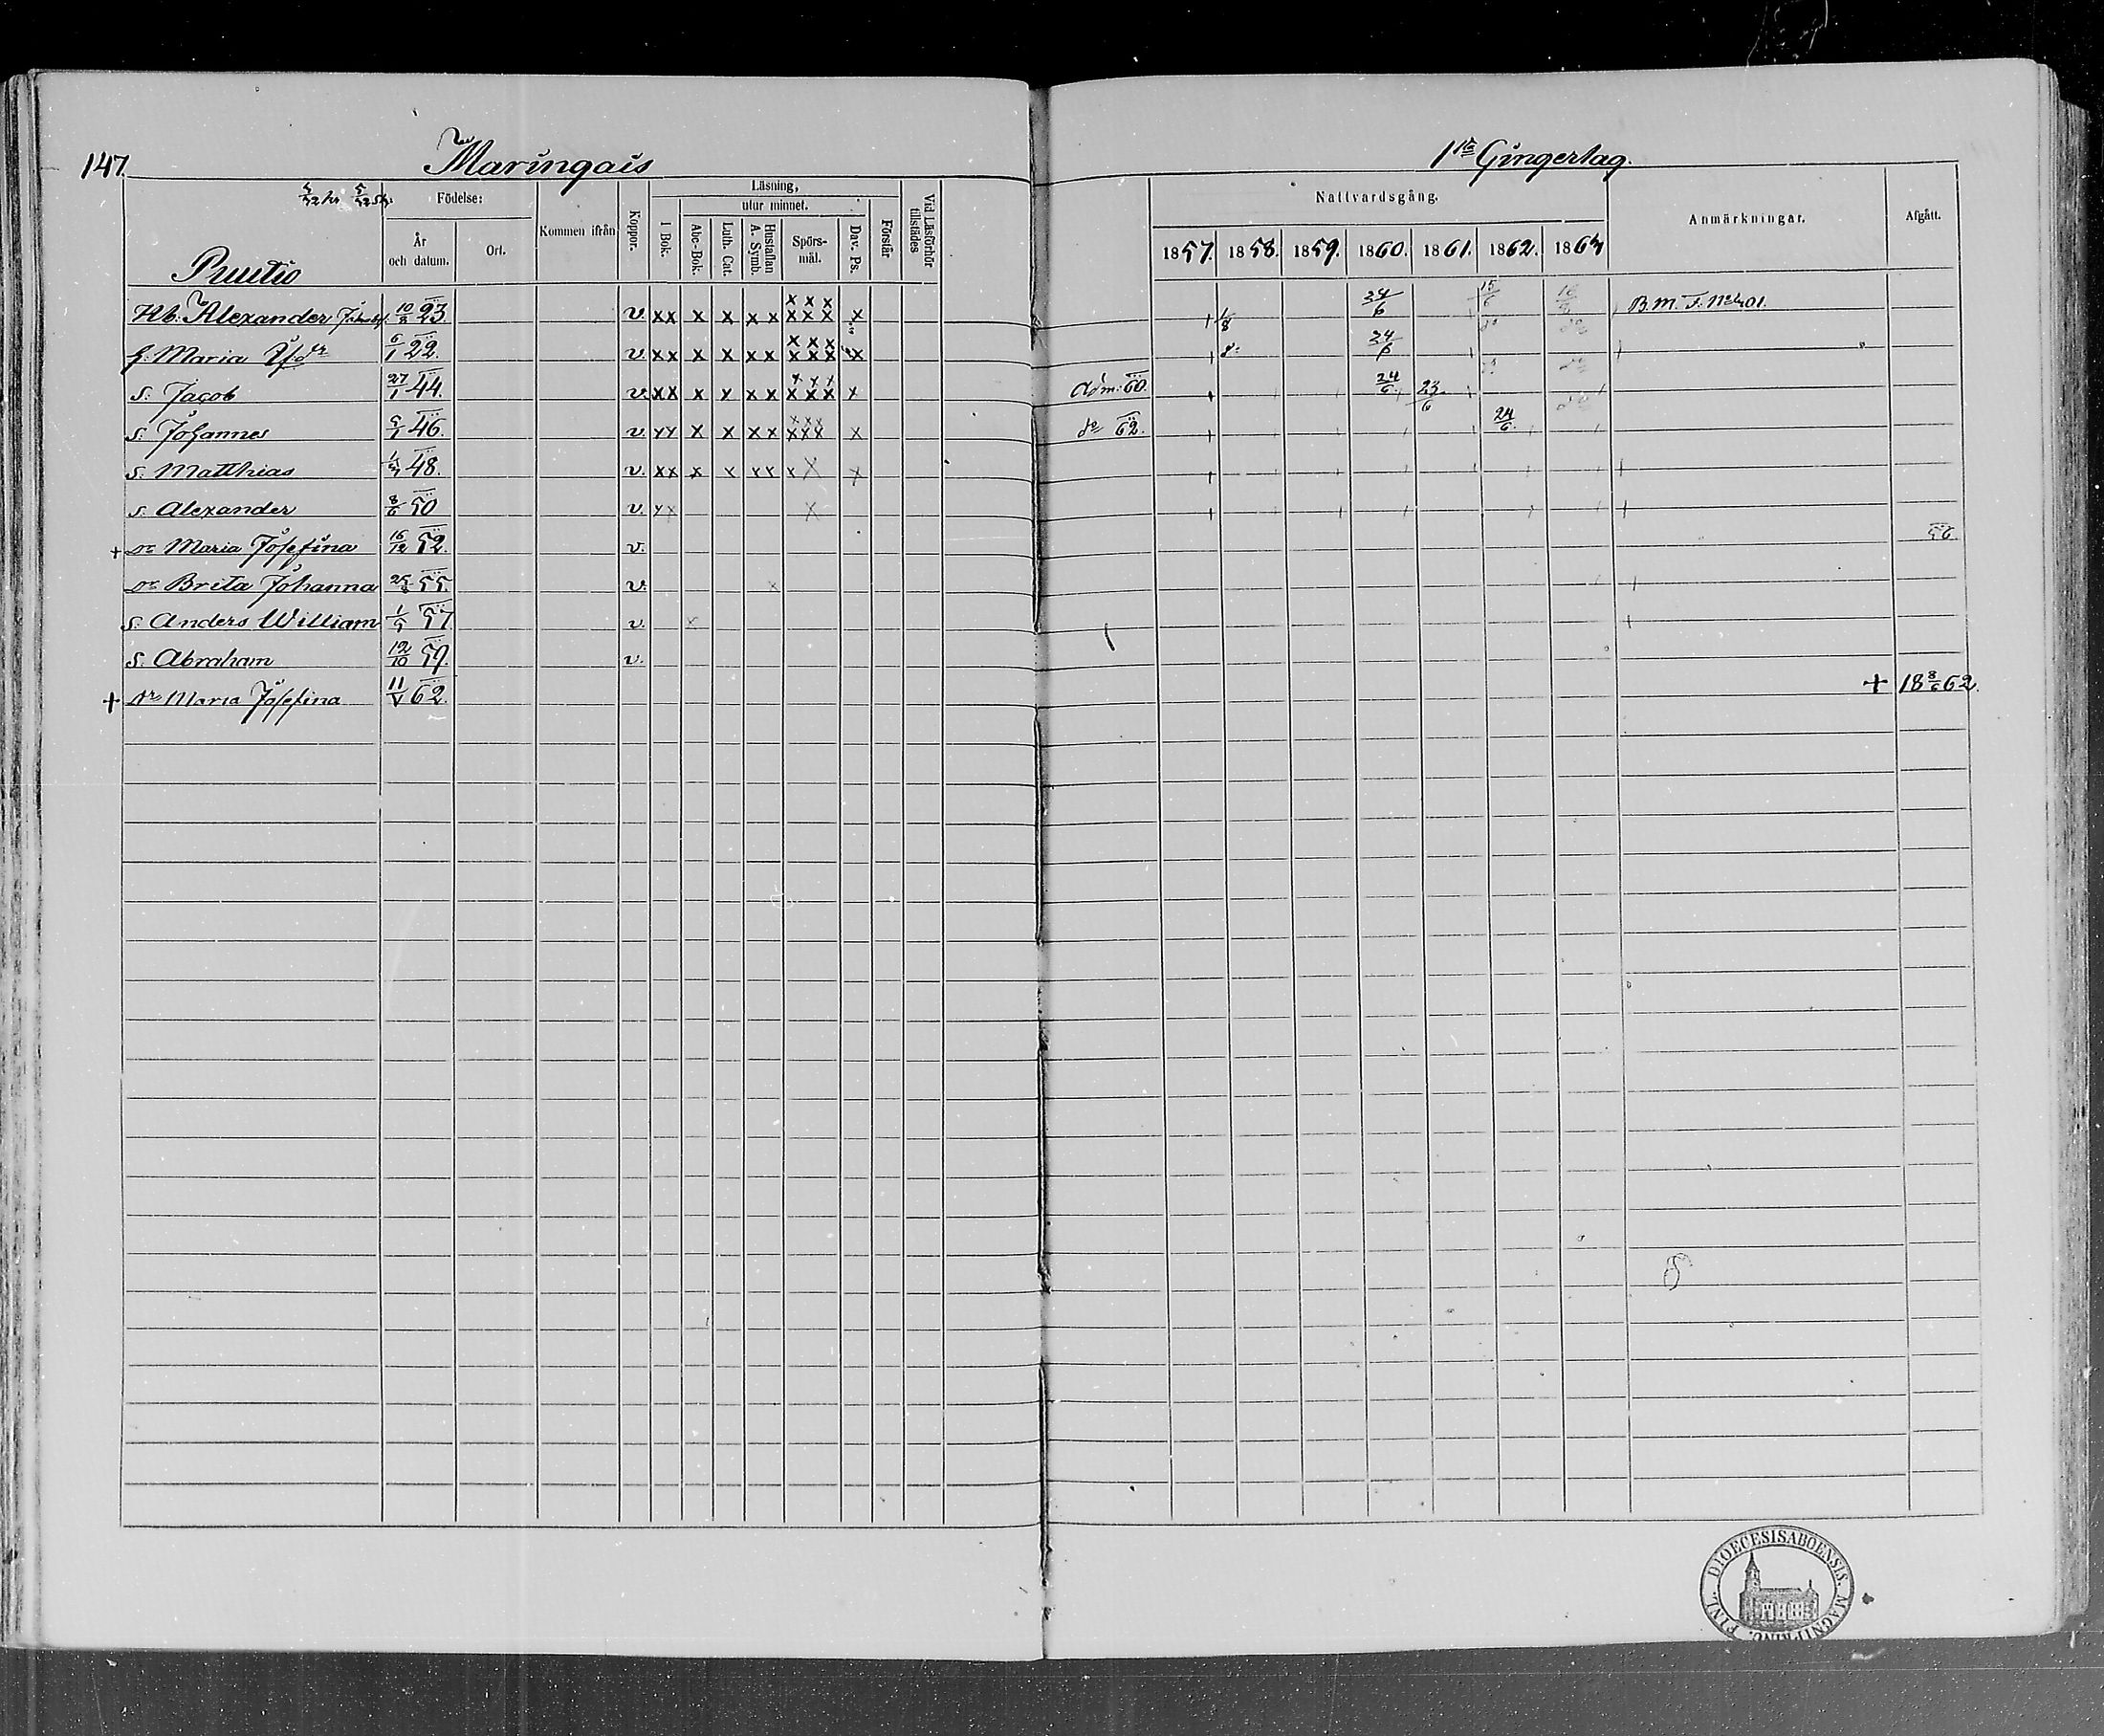 147.
Maringais
1sta Gingerlag.
Födelse:
Läsning,
utur minnet.
År
och datum.
Ort.
Kommen ifrån
Koppor.
I Bok.
Abc-Bok.
Luth. Cat.
Hustaflan
A. Symb.
Spörs-
mål.
Dav. Ps.
Förstår
Vid Läsförhör
tillstädes
Nattvardsgång.
Anmärkningar.
Afgått.
1857. 1858. 1859. 1860. 1861. 1862. 1863
Hb. Alexander 10/8 23. v. xx x x xx xxx xxx x 1/8 24/6 15/6 B.M.F. No 401.
h. Maria 6/1 22. v. xx x x xx xxx xxx x 24/6
s. Jacob 27/1 44. v. xx x x xx xxx xxx x Adm. 60. 24/6 23/6
s. Johannes 46. v. xx x x xx xxx xxx x do 62. 24/6
s. Matthias 48. v. xx x x xx x x x
s. Alexander 8/6 50 v. xx x
+ dr Maria Josefina 16/12 52. v. 56
dr Brita Johanna 55. v. x
s. Anders William 57 v. x
s. Abraham 12/10 59. v.
+ dr Maria Josefina 11/V 62. + 18 8/6 62.
DIOECESIS ABOENSIS. MAGNI PRINC. FINL.